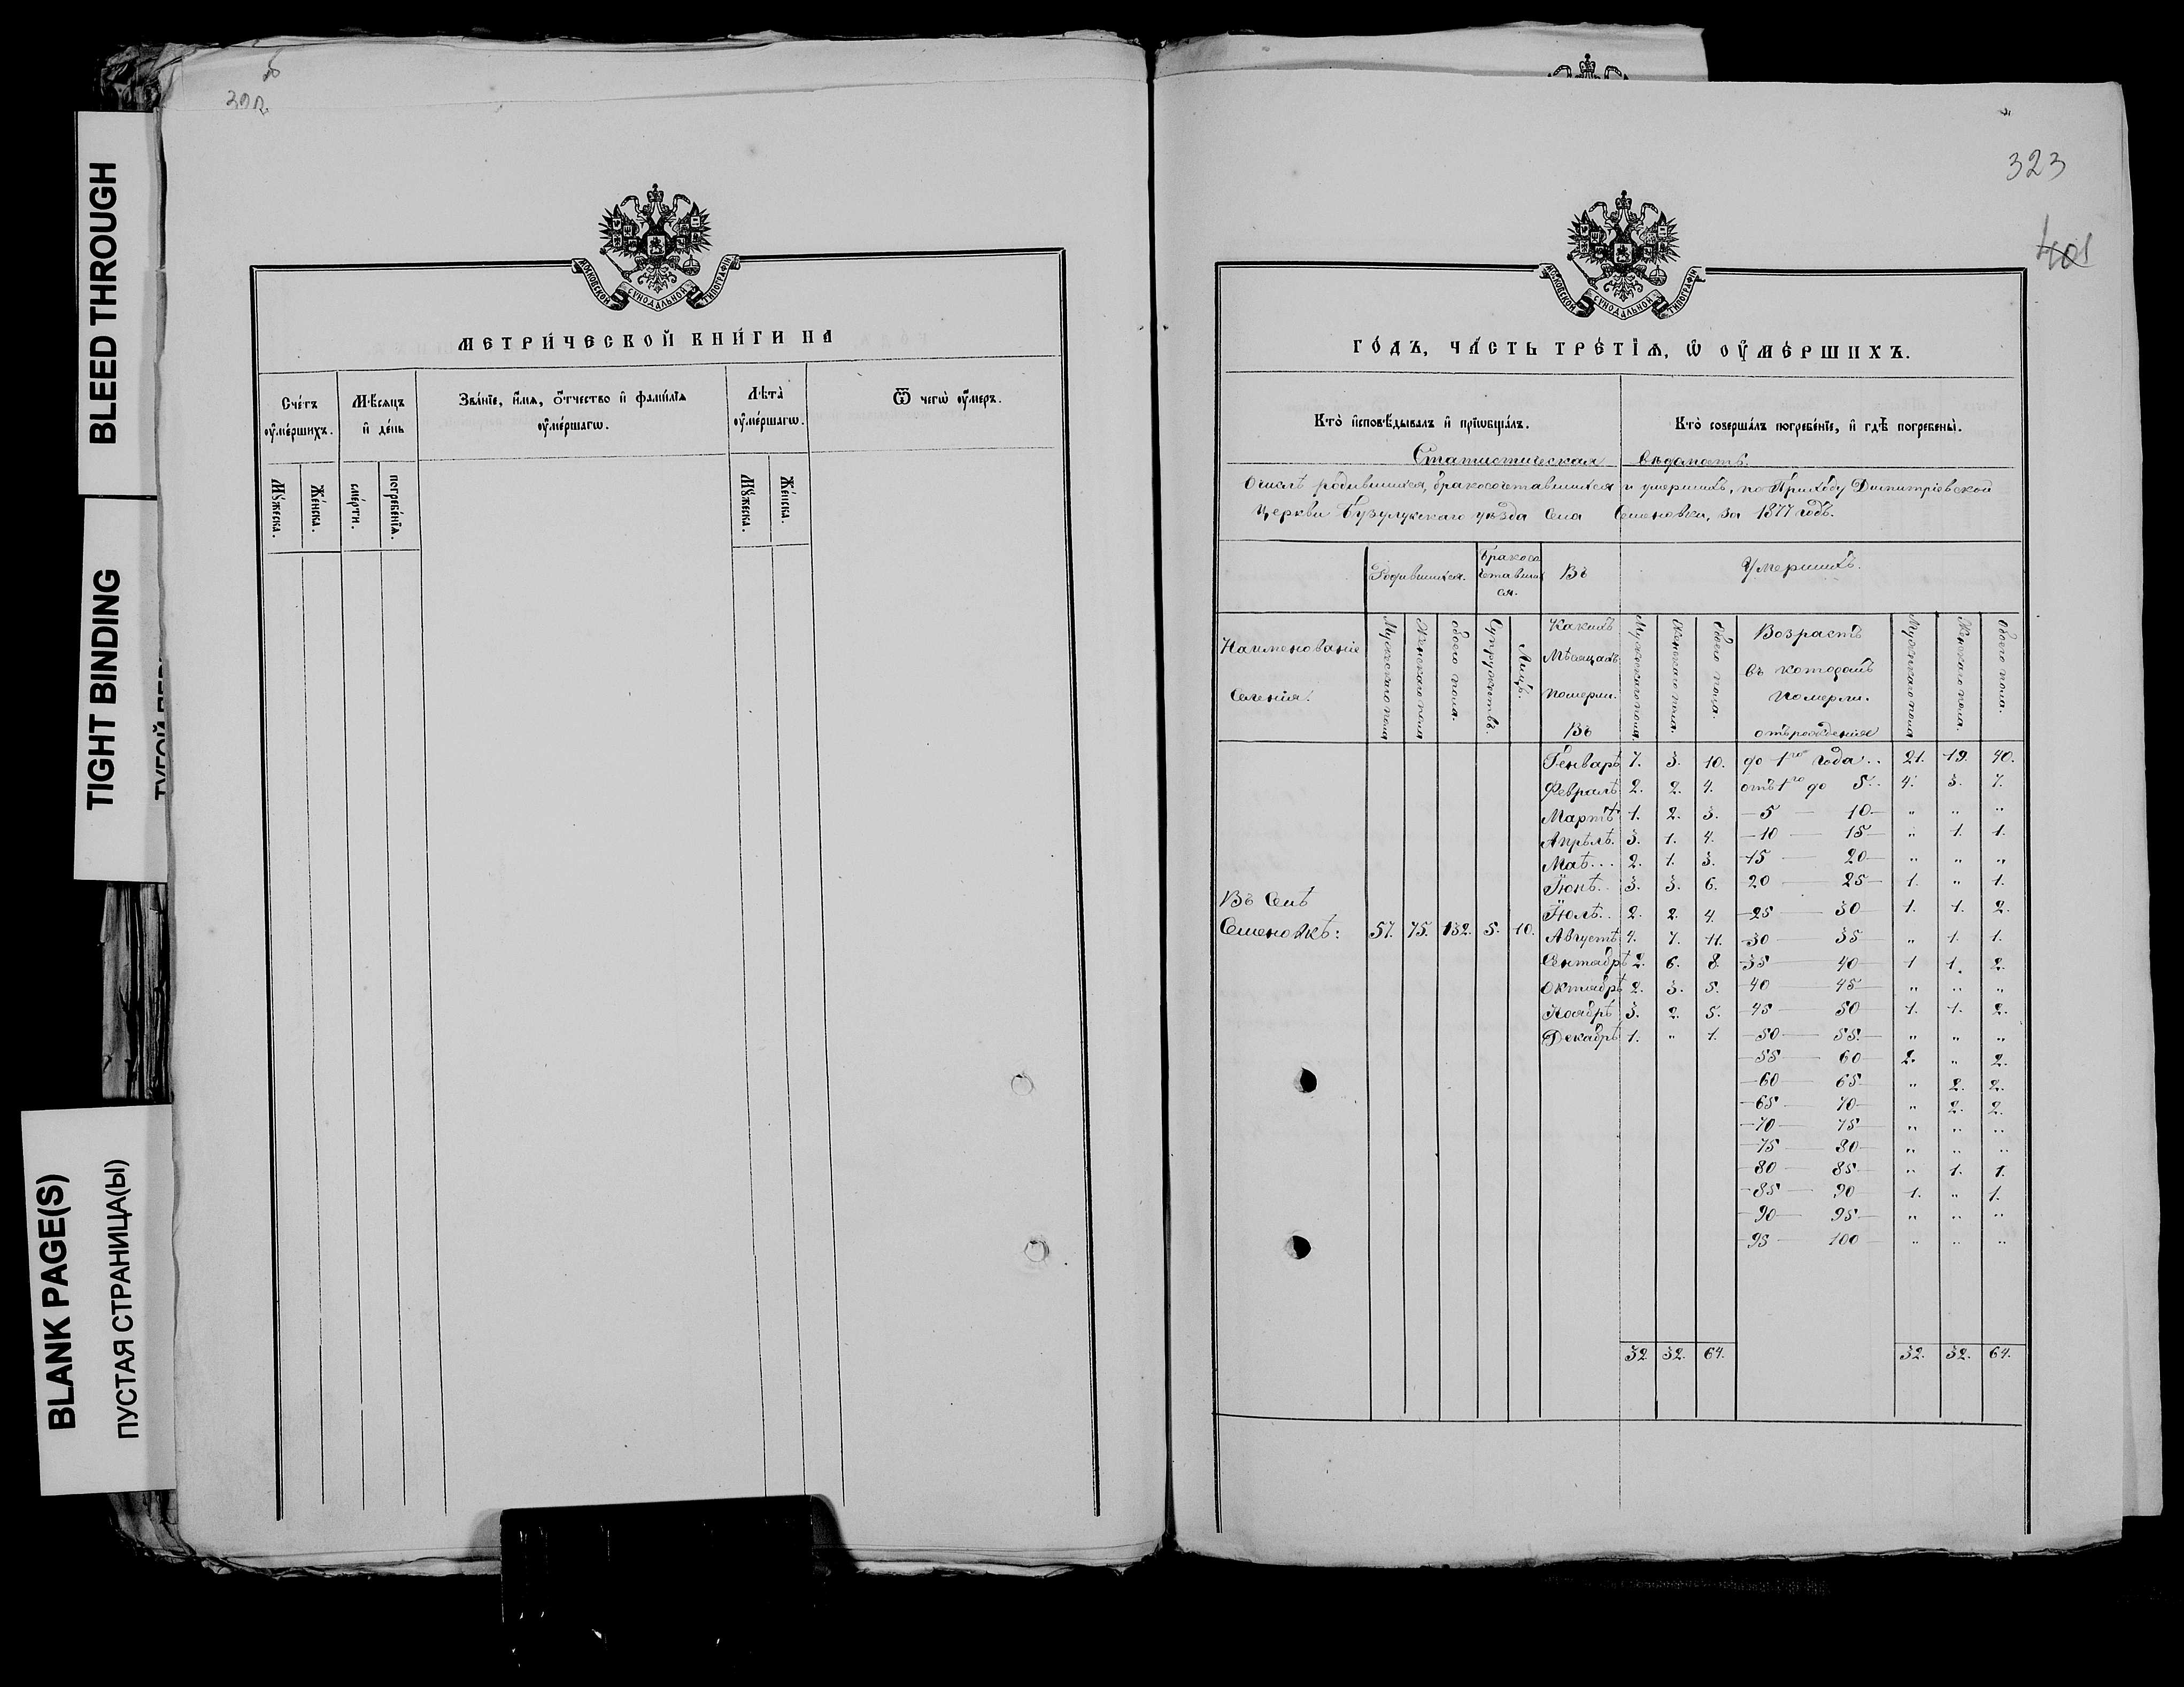 BLEED THROUGH
TIGHT BINDING
BLANK PAGE(S)
ПУСТАЯ СТРАНИЦА(Ы)
МОСКОВСКОЙ СѴНОДАЛЬНОЙ ТИПОГРАФІИ
МЕТРИ́ЧЕСКОЙ КНИ́ГИ НА
Сче́тъ ᲂу҆ме́ршихъ.
Мѣ́сяцъ и҆ де́нь
Зва́нїе, и҆́мя, ѻ҆́тчество и҆ фами́лїя ᲂу҆ме́ршагѡ.
Лѣта̀ ᲂу҆ме́ршагѡ.
Ѿ чегѡ̀ ᲂу҆́меръ.
Мꙋ́жеска.
Же́нска.
сме́рти.
погребе́нїя.
Мꙋ́жеска.
Же́нска.
323
401
МОСКОВСКОЙ СѴНОДАЛЬНОЙ ТИПОГРАФІИ
ГО́ДЪ, ЧА́СТЬ ТРЕ́ТЇѦ, Ѡ҆ ОУ҆МЕ́РШИХЪ.
Кто̀ и҆сповѣ́дывалъ и҆ прїѡбща́лъ.
Кто̀ соверша́лъ погребе́нїе, и҆ гдѣ̀ погребены̀.
Статистическая вѣдомость.
О числѣ родившихся, бракосочетавшихся и умершихъ, по Приходу Димитріевской
Церкви Бузулукскаго уѣзда Села Семеновки, за 1877 годъ.
Родившихся.
Бракосо
четавших
ся.
Въ
Умершихъ.
Наименованіе
Селенія.
Мужескаго пола
Женскаго пола
обоего пола.
Супружествъ.
Лицъ.
Какихъ
Мѣсяцахъ
померли.
Въ
Мужескаго пола.
Женскаго пола.
Обоего пола.
Возрастъ
въ которомъ
померли.
отъ рожденія
Мужескаго пола
Женскаго пола.
Обоего пола.
Генварѣ 7. 3. 10. до 1го года.. 21. 19. 40.
Февралѣ 2. 2. 4. отъ 1го до 5.. 4. 3. 7.
Мартѣ 1. 2. 3. —5 — 10— „ „ „
Апрѣлѣ. 3. 1. 4. —10 — 15— „ 1. 1.
Маѣ... 2. 1. 3. —15 — 20— „ „ „
Іюнѣ.. 3. 3. 6. —20 — 25— 1. „ 1.
Въ Селѣ
Іюлѣ.. 2. 2. 4. —25 — 30— 1. 1. 2.
Семеновкѣ: 57. 75. 132. 5. 10. Августѣ 4. 7. 11. —30 — 35— „ 1. 1.
Сентябрѣ 2. 6. 8. —35 — 40— 1 1. 2.
Октябрѣ 2. 3. 5. —40 — 45— „ „ „
Ноябрѣ 3. 2. 5. —45 — 50— 1. 1. 2.
Декабрѣ 1. „ 1. —50 — 55.— „ „ „
—55 — 60— 2. „ 2.
—60 — 65— „ 2. 2.
—65 — 70— „ 2. 2.
—70 — 75— „ „ „
—75 — 80— „ „ „
—80 — 85— „ 1. 1.
—85 — 90— 1. „ 1.
—90 — 95— „ „ „
—95 — 100— „ „ „
32 32. 64. 32. 32. 64.